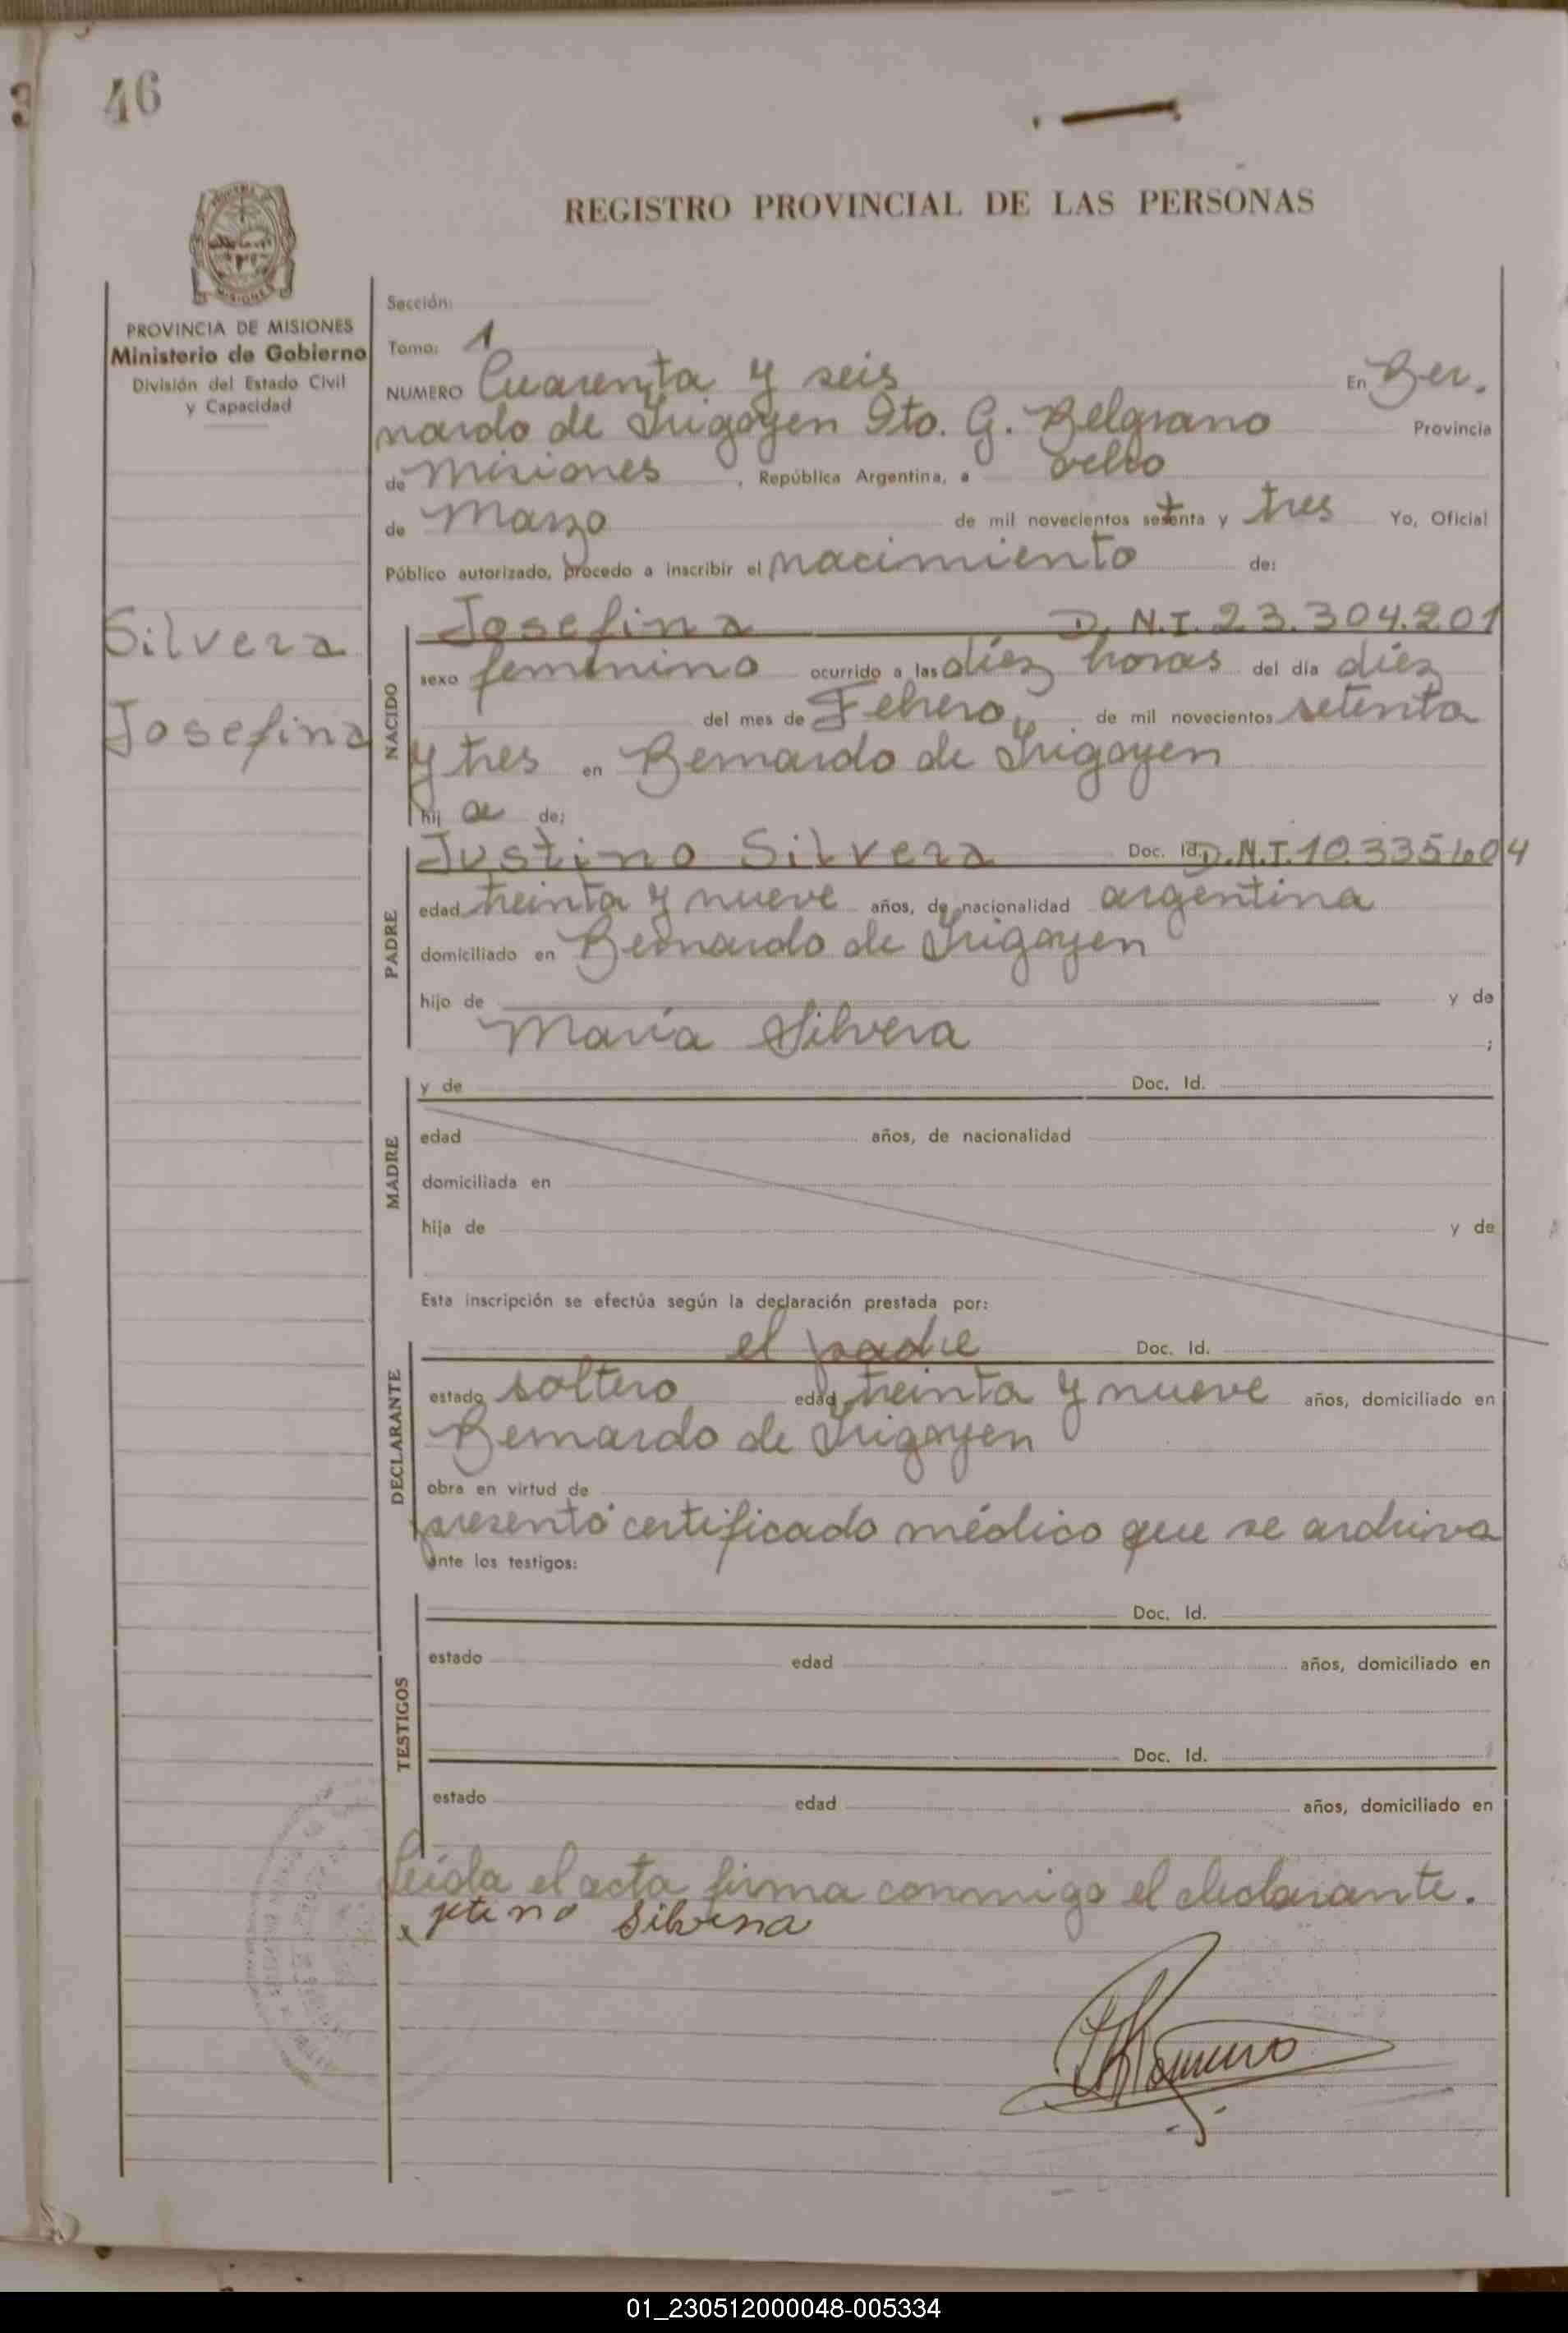 46
REGISTRO PROVINCIAL DE LAS PERSONAS
PROVINCIA DE MISIONES
Ministerio de Gobierno
División del Estado Civil
y Capacidad
Sección:
Tomo: 1
NUMERO Cuarenta y seis En Ber.
nardo de Irigoyen Dto. G. Belgrano Provincia
de Misiones, República Argentina, a ocho
de Marzo de mil novecientos setenta y tres Yo, Oficial
Público autorizado, procedo a inscribir el nacimiento de:
Silvera
Josefina
NACIDO
Josefina D.N.I. 23.304.201
sexo femenino ocurrido a las diez horas del día diez
del mes de Febrero de mil novecientos setenta
y tres en Bernardo de Irigoyen
hij a de:
PADRE
Justino Silvera Doc. Id. D.N.I. 10.335.604
edad treinta y nueve años, de nacionalidad argentina
domiciliado en Bernardo de Irigoyen
hijo de y de
María Silvera ;
MADRE
y de Doc. Id.
edad años, de nacionalidad
domiciliada en
hija de y de
Esta inscripción se efectúa según la declaración prestada por:
DECLARANTE
el padre Doc. Id.
estado soltero edad treinta y nueve años, domiciliado en
Bernardo de Irigoyen
obra en virtud de
presentó certificado médico que se archiva
ante los testigos:
TESTIGOS
Doc. Id.
estado edad años, domiciliado en
Doc. Id.
estado edad años, domiciliado en
Leída el acta firma conmigo el declarante.
x jtino Silvera
01_230512000048-005334